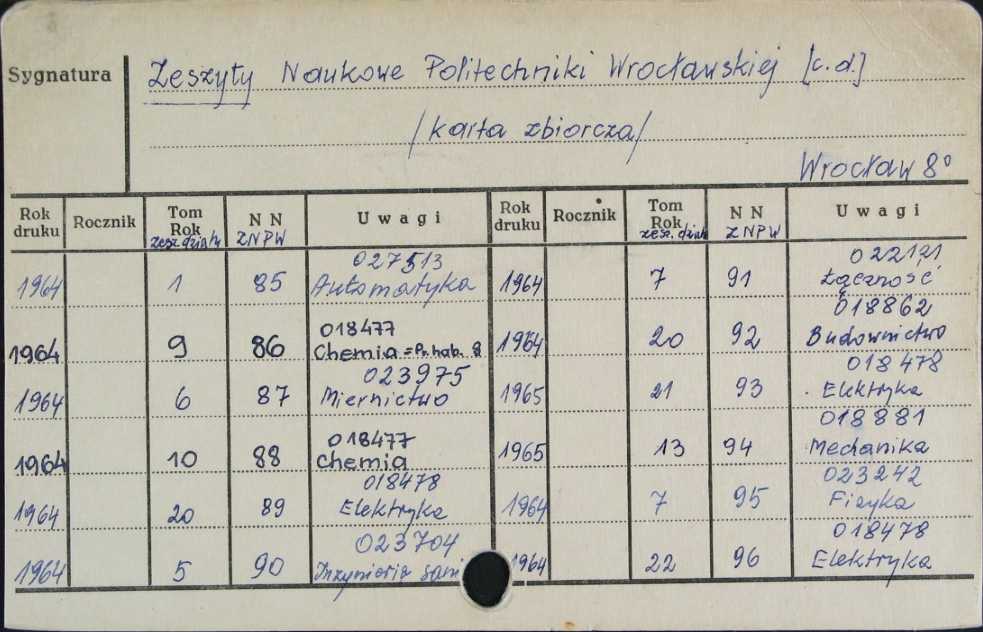 Sygnatura
Zeszyty Naukowe Politechniki Wrocławskiej [c.d.]
/karta zbiorcza/
Wrocław 8°
Rok druku Rocznik Tom Rok zesz. działu N N ZNPW Uwagi Rok druku Rocznik Tom Rok zesz. działu N N ZNPW Uwagi
027513 022121
1964 1 85 Automatyka 1964 7 91 Łączność
018477 018862
1964 9 86 Chemia = Pr. hab. 8 1964 20 92 Budownictwo
023975 018478
1964 6 87 Miernictwo 1965 21 93 Elektryka
018477 018881
1964 10 88 Chemia 1965 13 94 Mechanika
018478 023242
1964 20 89 Elektryka 1964 7 95 Fizyka
023704 018478
1964 5 90 Inżynieria sani 1964 22 96 Elektryka